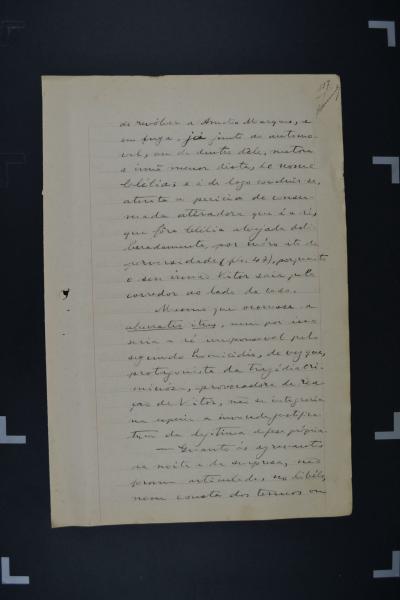 de revólver a Amelia Marques, e
em fuga, já junto do automo-
vel, ou de dentro dele, matou
a irmã menor desta, de nome
Clélia; e é de logo concluir-se,
atenta a pericia de consu-
mada atiradora que é a ré,
que fôra Clélia alvejada deli-
beradamente, por méro ato de
perversidade (fls. 43), porquanto
o seu irmão Vitor saiu pelo
corredor ao lado da casa.
Mesmo que ocorresse a
aberratio ictus, nem por isso
seria a ré irresponsavel pelo
segundo homicidio, de vez que,
protagonista da tragédia cri-
minosa, provocadora da rea-
ção de Vitor, não se integraria
na especie a invocada justifica-
tiva da legitima defesa própria.
— Quanto ás agravantes
da noite e da surpresa, não
foram articuladas no libélo,
nem consta dos termos ou